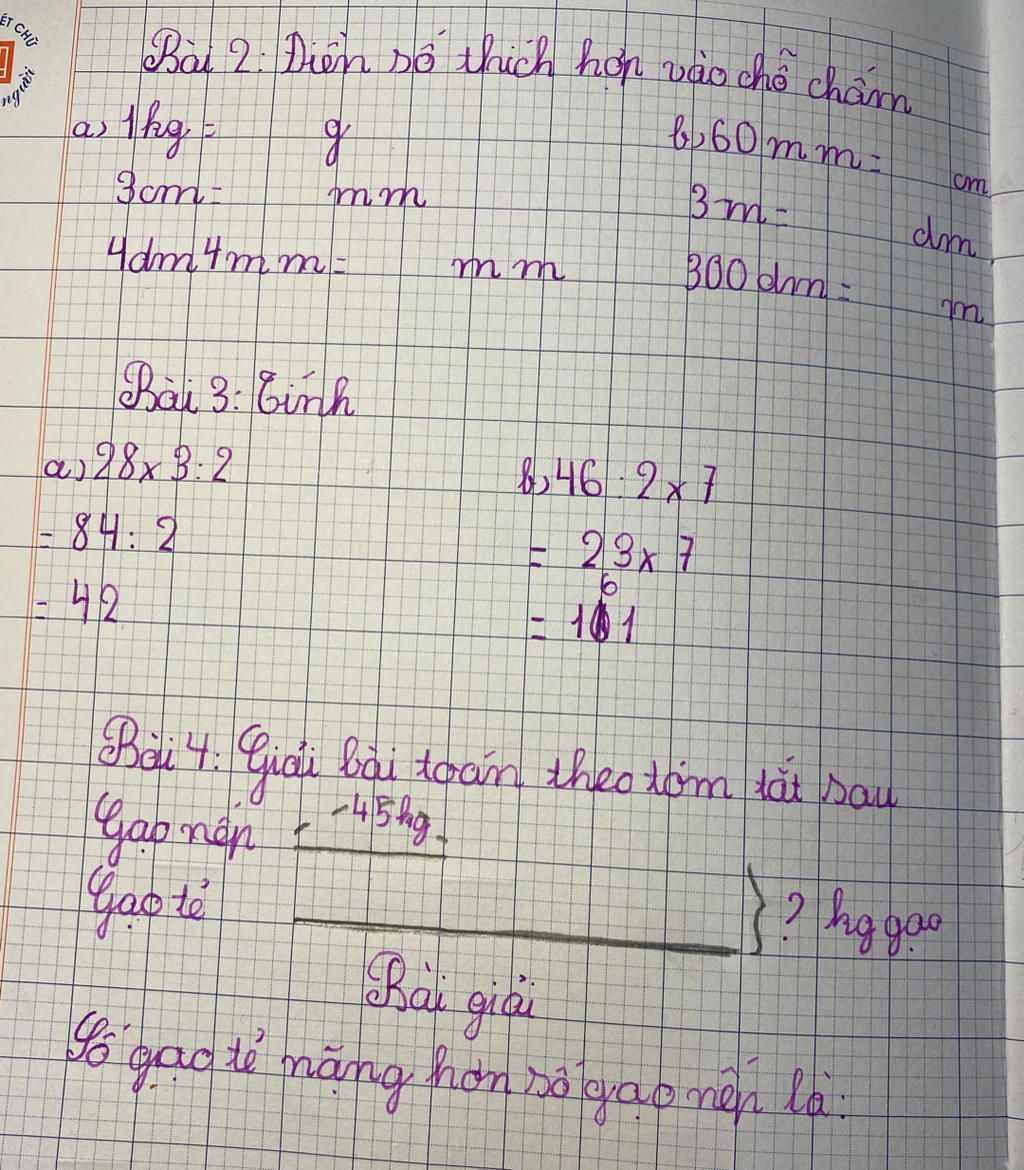 ẾT CHỮ
người
Bài 2: Điền số thích hợp vào chỗ chấm
a, 1kg = g b, 60mm = cm
3cm = mm 3m = dm
4dm4mm = mm 300dm = m
Bài 3: Tính
a, 28 x 3 : 2 b, 46 : 2 x 7
= 84 : 2 = 23 x 7
= 42 = 161
Bài 4: Giải bài toán theo tóm tắt sau
Gạo nếp 45kg
Gạo tẻ } ? kg gạo
Bài giải
Số gạo tẻ nặng hơn số gạo nếp là: